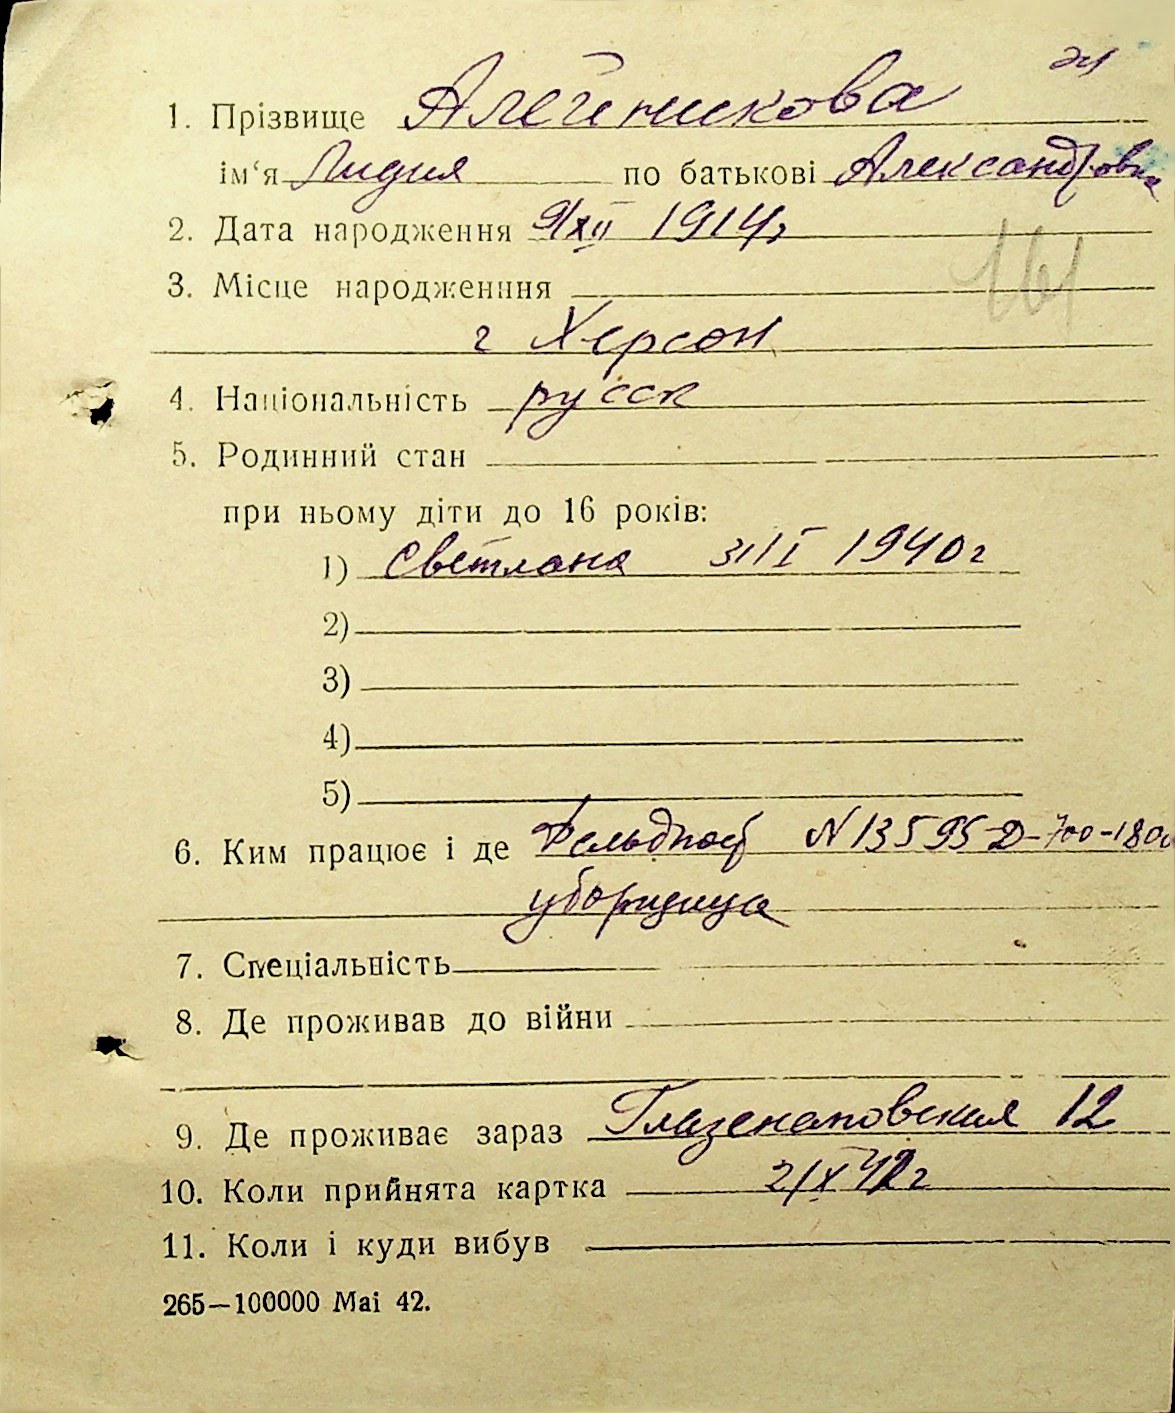 1. Прізвище Алейникова
ім‘я Лидия по батькові Александровна
2. Дата народження 9/XII 1914г
161
3. Місце народженння
г Херсон
4. Національність русск
5. Родинний стан
при ньому діти до 16 років:
1) Светлана 31/I 1940г
2)
3)
4)
5)
6. Ким працює і де Фельдпост N 13595-Д-700-1800
уборщица
7. Спеціальність
8. Де проживав до війни
9. Де проживає зараз Глазенаповская 12
10. Коли прийнята картка 2/X 42г
11. Коли і куди вибув
265—100000 Mai 42.